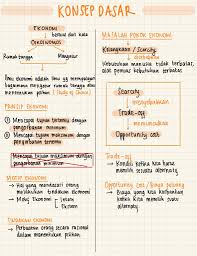 KONSEP DASAR
EKONOMI
berasal dari kata
OIKONOMOS
Rumah tangga
Mengatur
Ilmu ekonomi adalah ilmu yg
(Study of Choice)
PRINSIP EKONOMI
① Mencapai tujuan tertentu dengan
pengorbanan minimum
② Mencapai tujuan maksimum dengan
pengorbanan tertentu
Mencapai tujuan maksimum dengan
pengorbanan minimum
MOTIF EKONOMI
→ Hal yang mendasari orang
melakukan tindakan ekonomi
→ Motif Ekonomi
Intern
Ekstern
TINDAKAN EKONOMI
→ Perbuatan orang secara rasional
dalam menentukan pilihan
MASALAH POKOK EKONOMI
Kelangkaan / Scarcity
manusia tidak terbatas,
alat pemuas kebutuhan terbatas
Scarcity
menyebabkan
Trade-off
memunculkan
Opportunity cost
Trade-off
→ Kondisi ketika kita harus
memilih sesuatu alternatif
Opportunity Cost / Biaya peluang
→ Biaya yang kita korbankan
ketika kita memilih suatu
alternatif